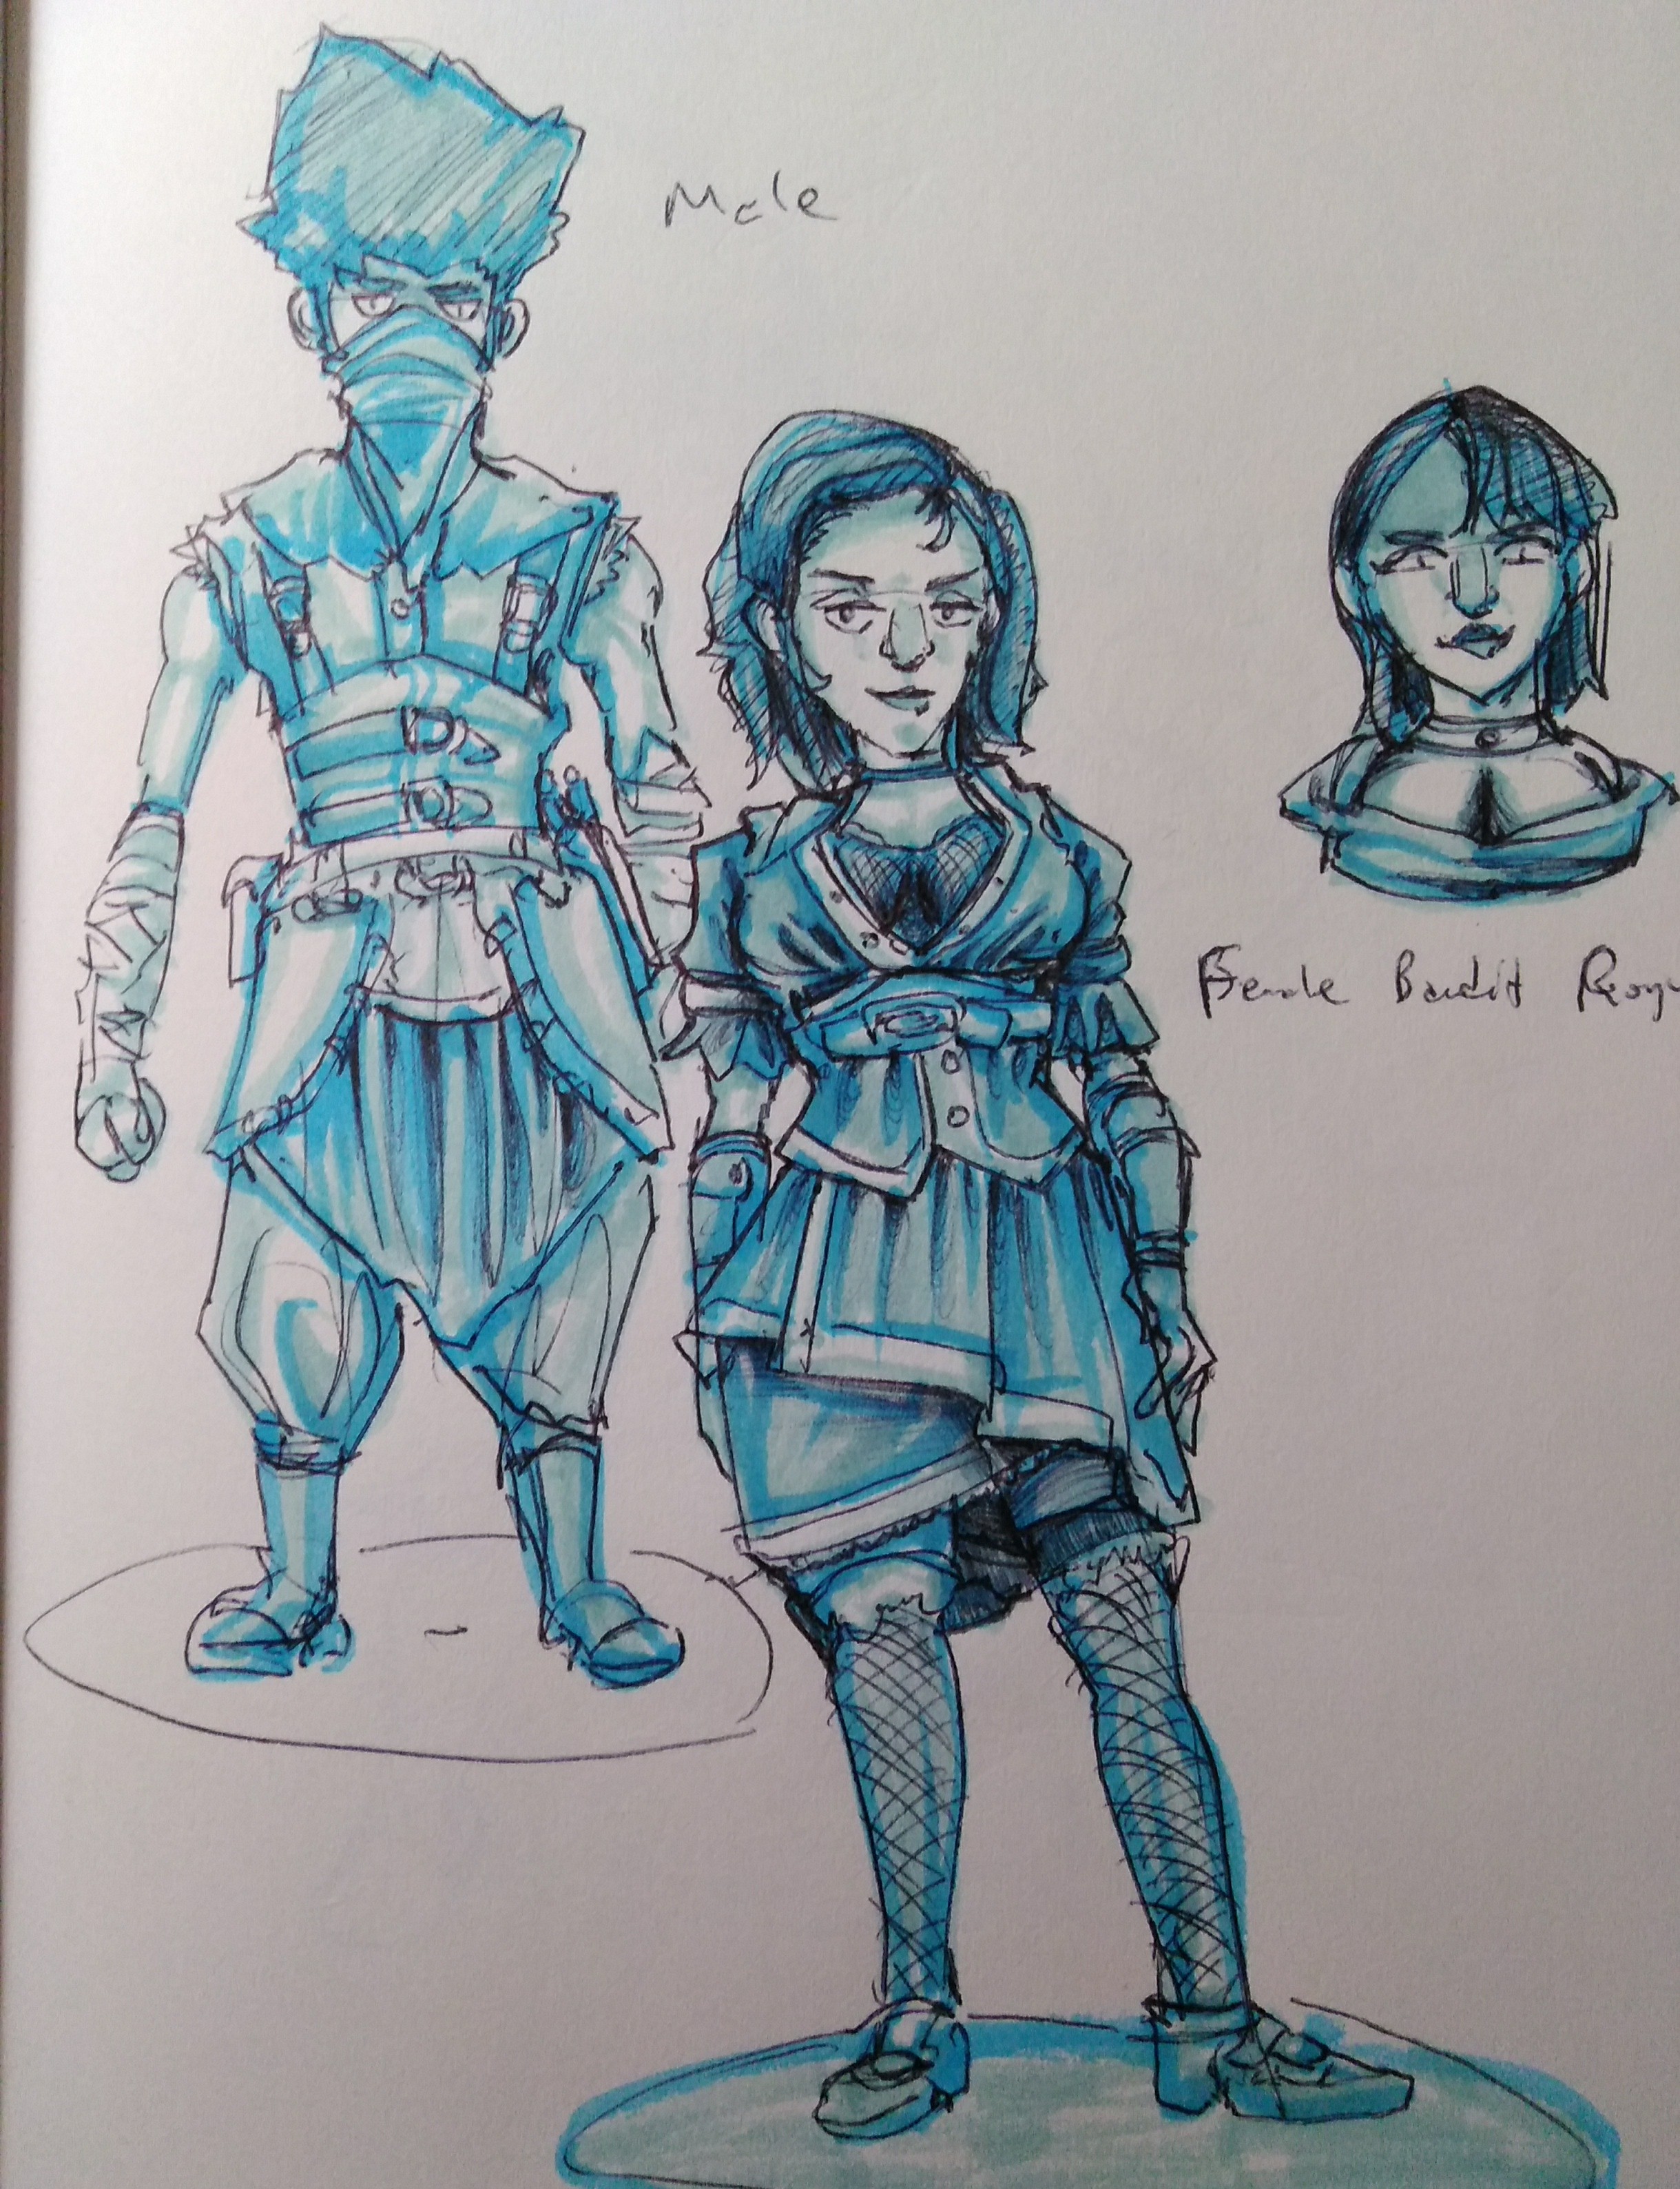 Male
Female Bandit